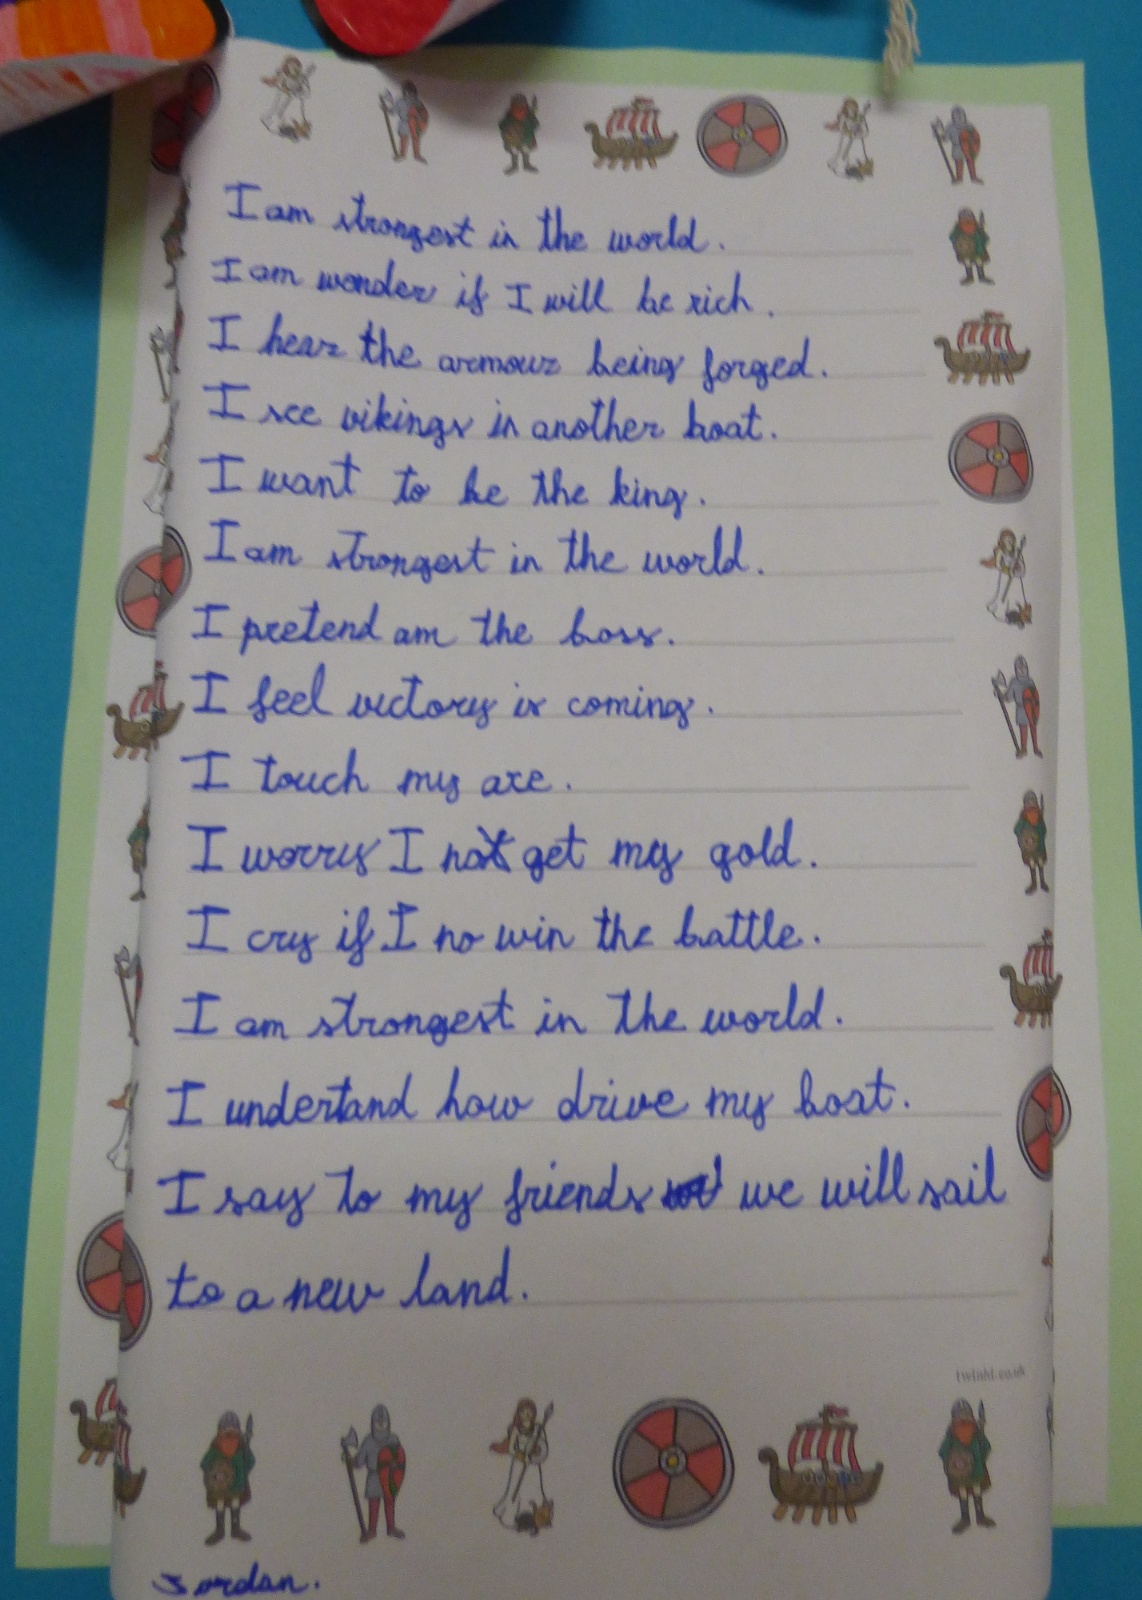 I am strongest in the world.
I am wonder if I will be rich.
I hear the armour being forged.
I see vikings in another boat.
I want to be the king.
I am strongest in the world.
I pretend am the boss.
I feel victory is coming.
I touch my axe.
I worry I not get my gold.
I cry if I no win the battle.
I am strongest in the world.
I undertand how drive my boat.
I say to my friends we will sail
to a new land.
twinkl.co.uk
Jordan.